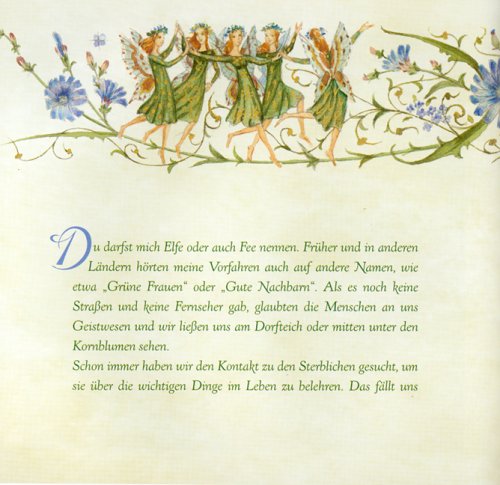 Du darfst mich Elfe oder auch Fee nennen. Früher und in anderen
Ländern hörten meine Vorfahren auch auf andere Namen, wie
etwa „Grüne Frauen“ oder „Gute Nachbarn“. Als es noch keine
Straßen und keine Fernseher gab, glaubten die Menschen an uns
Geistwesen und wir ließen uns am Dorfteich oder mitten unter den
Kornblumen sehen.
Schon immer haben wir den Kontakt zu den Sterblichen gesucht, um
sie über die wichtigen Dinge im Leben zu belehren. Das fällt uns